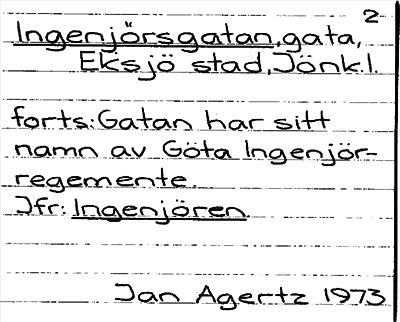 2
Ingenjörsgatan, gata,
Eksjö stad, Jönk.l.
forts: Gatan har sitt
namn av Göta Ingenjör-
regemente.
Jfr: Ingenjören.
Jan Agertz 1973